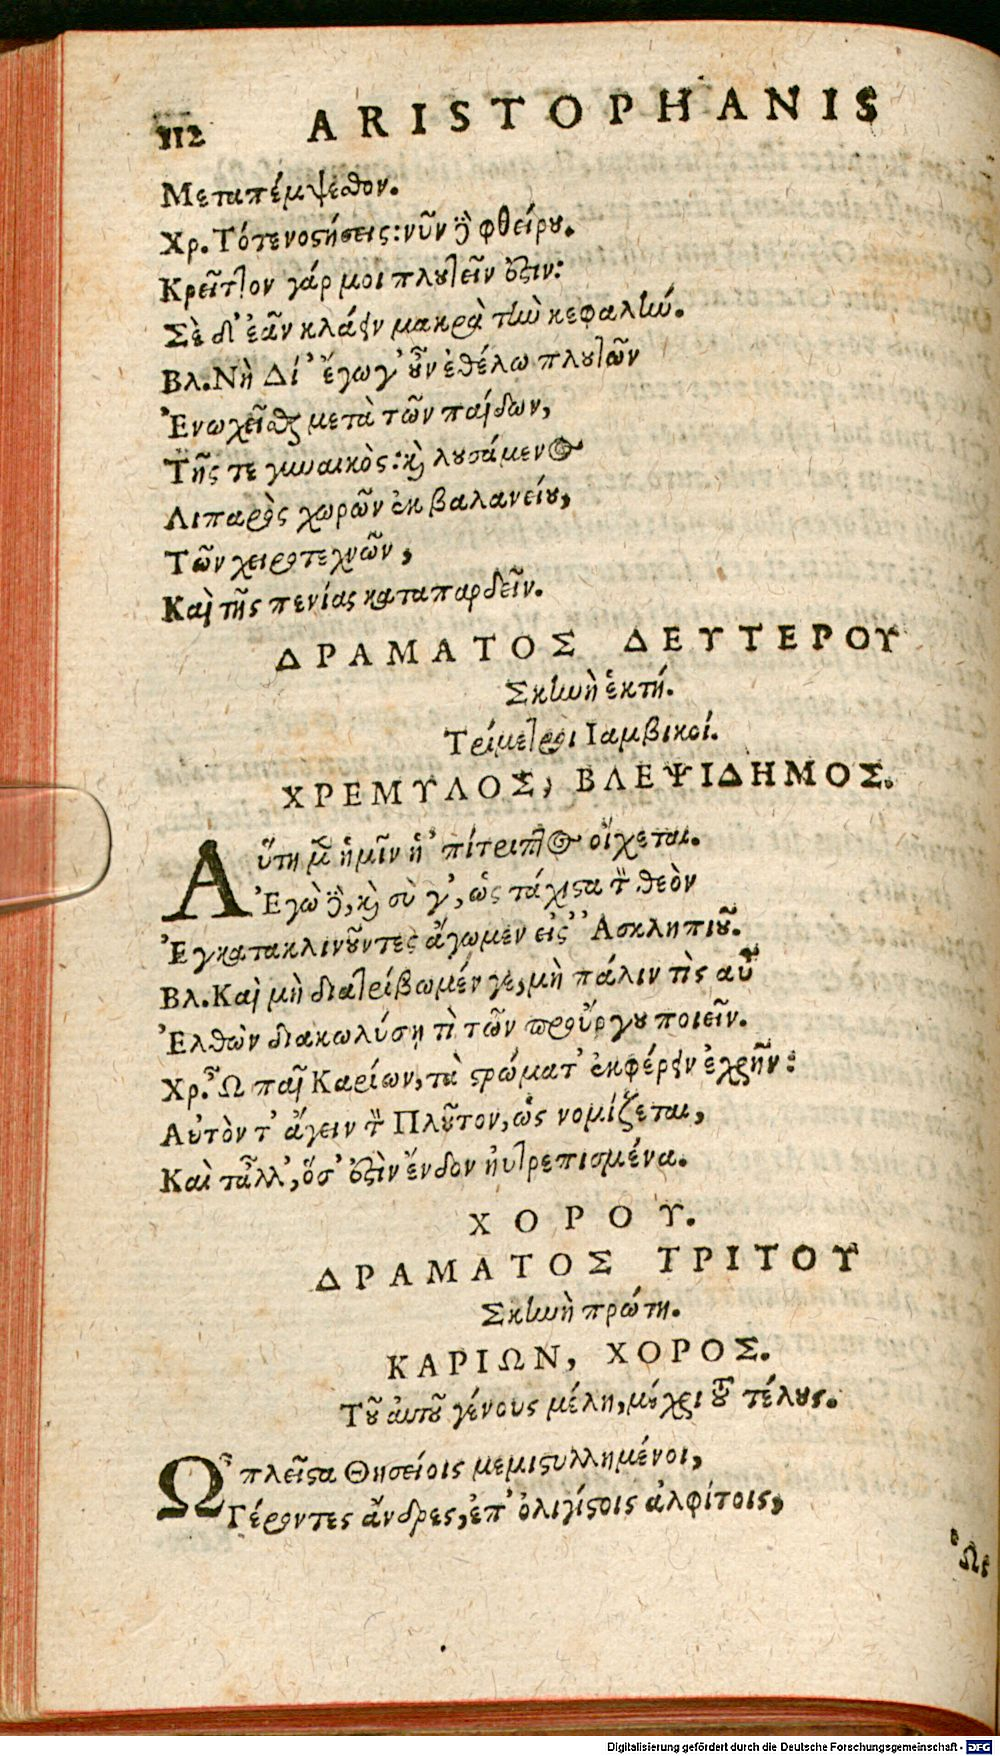 112 ARISTOPHANIS
Μεταπέμψεσθον.
Χρ. Τότε νοστήσεις: νῦν δὲ φθείρου.
Κρεῖττον γάρ μοι πλουτεῖν ἐστιν:
Σὲ δ' ἐᾶν κλάειν μακρὰ τὴν κεφαλήν.
Βλ. Νὴ Δί' ἔγωγ' οὖν ἐθέλω πλουτῶν
Ἐνωχεῖσθαι μετὰ τῶν παίδων,
Τῆς τε γυναικὸς: καὶ λουσάμενος
Λιπαρὸς χωρῶν ἐκ βαλανείου,
Τῶν χειροτεχνῶν,
Καὶ τῆς πενίας καταπαρδεῖν.
ΔΡΑΜΑΤΟΣ ΔΕΥΤΕΡΟΥ
Σκηνὴ ἑκτή.
Τρίμετροι Ιαμβικοί.
ΧΡΕΜΥΛΟΣ, ΒΛΕΨΙΔΗΜΟΣ.
Αὕτη μὲν ἡμῖν ἡ' πίτριπτος οἴχεται.
Ἐγὼ δὲ, καὶ σὺ γ', ὡς τάχιστα τὸν θεὸν
Ἐγκατακλινοῦντες ἄγωμεν εἰς Ἀσκληπιοῦ.
Βλ. Καὶ μὴ διατρίβωμέν γε, μὴ πάλιν τὶς αὖ
Ἐλθὼν διακωλύσῃ τὶ τῶν προὔργου ποιεῖν.
Χρ. Ὦ παῖ Καρίων, τὰ στρώματ' ἐκφέρειν ἐχρῆν:
Αὐτὸν τ' ἄγειν τὸν Πλοῦτον, ὡς νομίζεται,
Καὶ τἆλλ', ὅσ' ἐστὶν ἔνδον ηὐτρεπισμένα.
ΧΟΡΟΥ.
ΔΡΑΜΑΤΟΣ ΤΡΙΤΟΥ
Σκηνὴ πρώτη.
ΚΑΡΙΩΝ, ΧΟΡΟΣ.
Τοῦ αὐτοῦ γένους μέλη, μέχρι τοῦ τέλους.
Ὦ πλεῖστα Θησείοις μεμιστυλλημένοι,
Γέροντες ἄνδρες, ἐπ' ὀλιγίστοις ἀλφίτοις,
Ὡς
Digitalisierung gefördert durch die Deutsche Forschungsgemeinschaft - DFG